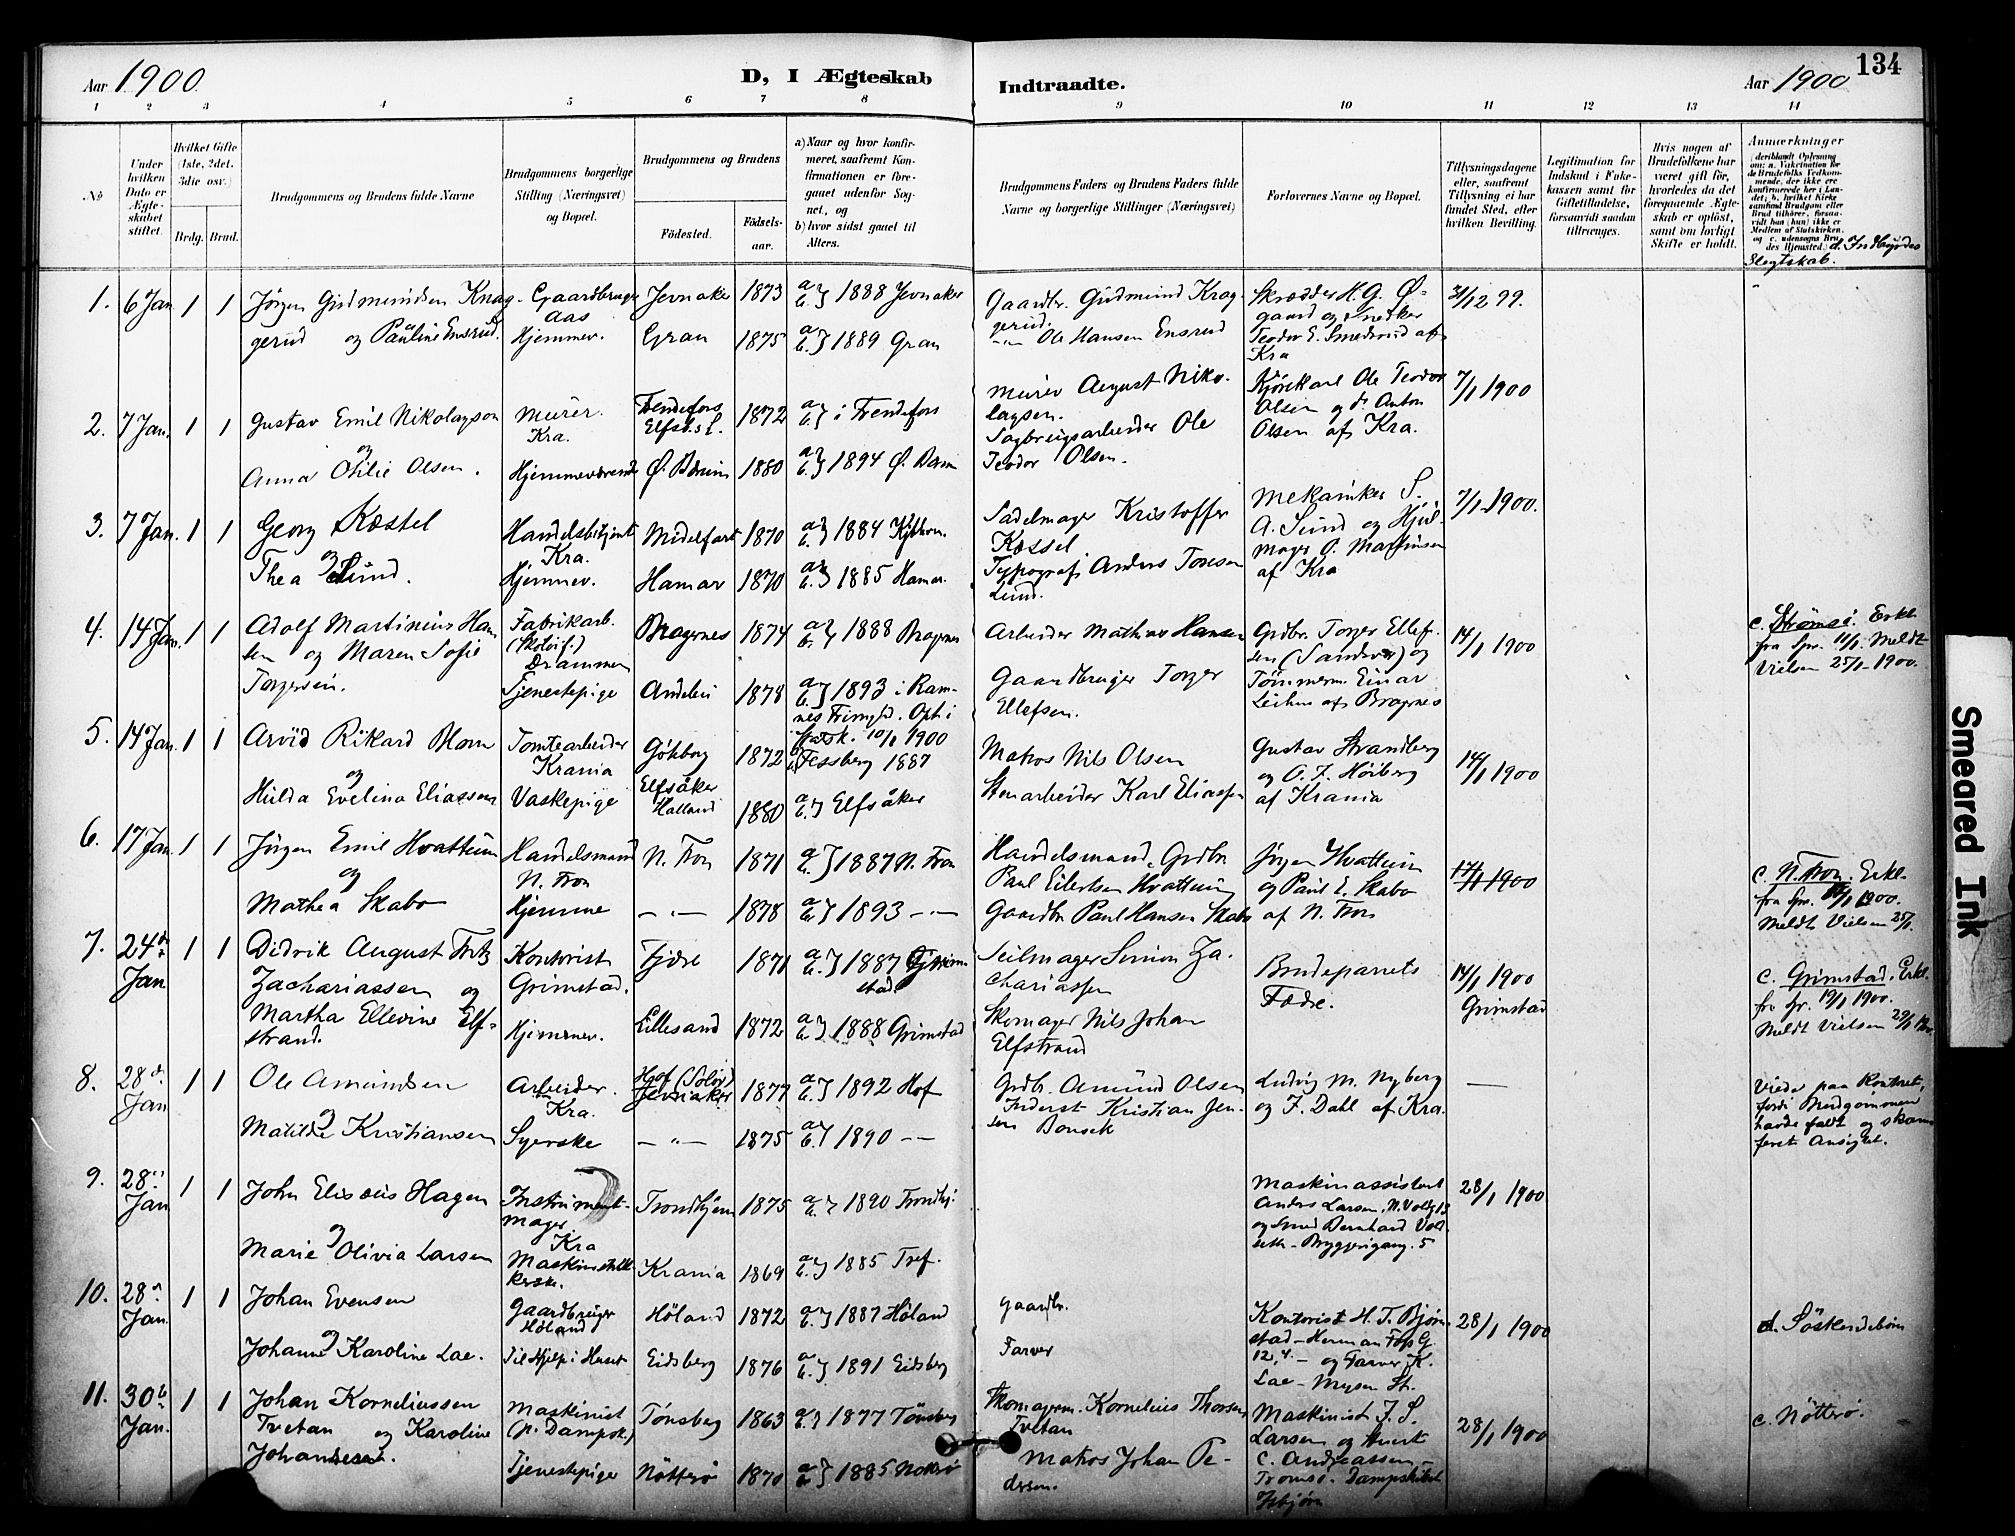 134
Aar 1900
D, I Ægteskab Indtraadte.
Aar 1900
1 2 3 4 5 6 7 8 9 10 11 12 13 14
No
Under hvilken Dato er Ægteskabet stiftet.
Hvilket Gifte (1ste, 2det, 3die osv.)
Brdg. Brud.
Brudgommens og Brudens fulde Navne
Brudgommens borgerlige Stilling (Næringsvei) og Bopæl.
Brudgommens og Brudens
Fødested.
Fødselsaar.
a) Naar og hvor konfirmeret, saafremt Konfirmationen er foregaaet udenfor Sognet, og
b) hvor sidst gaaet til Alters.
Brudgommens Faders og Brudens Faders fulde Navne og borgerlige Stillinger (Næringsvei)
Forlovernes Navne og Bopæl.
Tillysningsdagene eller, saafremt Tillysning ei har fundet Sted, efter hvilken Bevilling.
Legitimation for Indskud i Enkekassen samt for Giftetilladelse, forsaavidt saadan tiltrænges.
Hvis nogen af Brudefolkene har været gift før, hvorledes da det foregaaende Ægteskab er opløst, samt om lovligt Skifte er holdt.
Anmerkninger
d. Indbyrdes Slegtskab.
1. 6 Jan 1 1 Jörgen Gudmundsen Knaggerud og Pauline Ensrud.
Gaardbruger Aas
Hjemmev.
Jevnaker 1873 a b } 1888 Jevnaker
Gran 1875 a b } 1889 Gran
Gaardbr. Gudmund Knaggerud.
-"- Ole Hansen Ensrud
Skrædder H. G. Øgaard og Snedker Teodor E. Smedsrud af Kra
31/12 99.
2. 7 Jan. 1 1 Gustav Emil Nikolaysen og
Anna Otilie Olsen.
Murer. Kra.
Hjemmeværende
Trendefors Elfsb. L. 1872 a b } i Trendefors
Ø. Bærum 1880 a b } 1894 Ø. Bærum
Murer August Nikolaysen.
Sagbrugsarbeider Ole Teodor Olsen.
Kjörekarl Ole Teodor Olsen og do Anton Olsen af Kra.
7/1 1900
3. 7 Jan. 1 1 Georg Kæstel og
Thea Lund.
Handelsbetjent Kra.
Hjemmev.
Midelfart 1870 a b } 1884 Kjbhvn.
Hamar 1870 a b } 1885 Hamar.
Sadelmager Kristoffer Kæssel
Typograf Anders Tonsen Lund.
Mekaniker S. A. Lund og Hjulmager O. Martinsen af Kra
7/1 1900.
4. 14 Jan. 1 1 Adolf Martinius Hansen og Maren Sofie Torgersen.
Fabrikarb. (Skotöif.) Drammen
Tjenestepige
Bragernes 1874 a b } 1888 Bragernes
Andebu 1878 a b } 1893 i Ramnes Frimgld. Opt i Statsk. 10/1 1900
Arbeider Mathias Hansen
Gaardbruger Torger Ellefsen.
Grdbr. Torger Ellefsen (Sandsvær) og Tömmerm. Einar af Bragnes
14/1 1900
c. Strømsö. Erkl. fra Spr. 11/1. Meldt Vielsen 25/1-1900.
5. 14 Jan. 1 1 Arvid Rikard Blom og
Hulda Evelina Eliassen
Tomtearbeider Krania
Vaskepige
Göteborg 1872 a b } Fessberg 1887
Elfsåker Halland 1880 a b } Elfsåker
Matros Nils Olsen
Stenarbeider Karl Eliassen
Gustav Strandberg og O. F. Höiberg af Krania
14/1 1900
6. 17 Jan. 1 1 Jörgen Emil Hvattum og
Mathea Skabo
Handelsmand N. Fron
Hjemme
N. Fron 1871 a b } 1887 N. Fron
-"- 1878 a b } 1893 -"-
Handelsmand, Grdbr. Paul Eilertsen Hvattum
Gaardbr Paul Hansen Skabo
Jörgen Hvattum og Paul E. Skabo af N. Fron
17/1 1900
c. N. Fron. Erkl. fra Spr. 1900. Meldt Vielsen 25/1.
7. 24de Jan. 1 1 Didrik August Fritz Zachariassen og
Martha Ellevine Elfstrand.
Kontorist Grimstad.
Hjemmev.
Fjære 1871 a b } 1887 Grimstad.
Lillesand 1872 a b } 1888 Grimstad
Seilmager Simon Zachariassen
Skomager Nils Johan Elfstrand
Brudeparrets Fædre.
14/1 1900 Grimstad
c. Grimstad. Erkl. fra Spr. 19/1 1900. Meldt Vielsen
8. 28de Jan 1 1 Ole Amundsen og
Matilde Kristiansen
Arbeider. Kra.
Syerske
Hof (Solör) Jevnaker 1877 a b } 1892 Hof
-"- 1875 a b } 1890 -"-
Grdbr. Amund Olsen
Inderst Kristian Jensen Bonsek
Ludvig M. Nyberg og F. Dahl af Kra.
—
Viede paa Kontoret, fordi Brudgommen havde faldt og skamferet Ansigtet.
9. 28de Jan 1 1 John Elisæus Hagen og
Marie Olivia Larsen
Instrumentmager. Kra
Trondhjem 1875 a b } 1890 Trondhj.
Krania 1869 a b } 1885 Tref.
Maskinassistent Anders Larsen, N. Voldg 13 og Smed Bernhard Vold - Bryggerigang. 5
28/1 1900
10. 28de Jan. 1 1 Johan Evensen og
Johanne Karoline Lae.
Gaardbruger Höland
Til Hjelp i Huset
Höland 1872 a b } 1887 Höland
Eidsberg 1876 a b } 1891 Eidsberg
Gaardbr.
Farver
Kontorist H. T. Bjørnstad - Herman Foss G. 12, 4. - og Farver K. Lae - Mysen St.
28/1 1900
d. Söskendebørn
11. 30te Jan. 1 1 Johan Korneliussen Tvetan og Karoline Johandesen.
Maskinist (p. Dampsk.)
Tjenestepige
Tönsberg 1863 a b } 1877 Tönsberg
Nötterö 1870 a b } 1885 Nötterö
Skomagerm. Kornelius Thorsen Tvetan
Matros Johan Pedersen.
Maskinist J. S. Larsen og C. Andreassen - Tromsö. Dampskibet Isbjörn
28/1 1900
c. Nötterö.
Smeared Ink